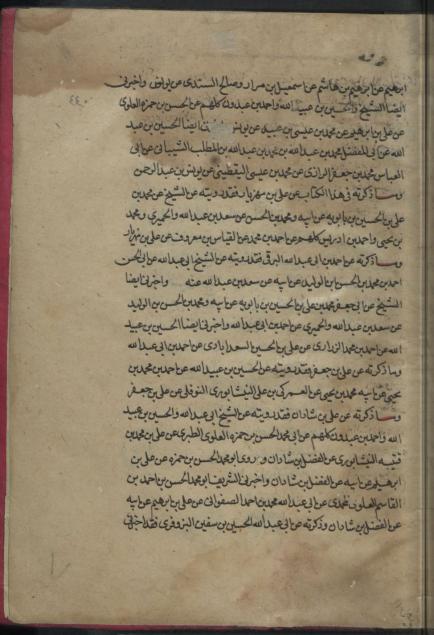 ابرهيم عن ابرهيم بن هاشم عن اسمعيل بن مرار وصالح السندي عن يونس واخبرني
ايضا الشيخ والحسين بن عبيد الله واحمد بن عبدون كلهم عن الحسن بن حمزه العلوي
عن علي بن ابرهيم عن محمد بن عيسى بن عبيد عن يونس ايضا الحسين بن عبيد
الله عن ابي المفضل محمد بن عبد الله بن محمد بن عبيد الله بن المطلب الشيباني عن ابي
العباس محمد بن جعفر الرازي عن محمد بن عيسى اليقطيني عن يونس بن عبد الرحمن
وما ذكرته في هذا الكتاب عن علي بن مهزيار فقد رويته عن الشيخ عن محمد بن
علي بن الحسين بن بابويه عن ابيه ومحمد بن الحسن عن سعد بن عبد الله والحميري ومحمد
بن يحيى واحمد بن ادريس كلهم عن احمد بن محمد عن العباس بن معروف عن علي بن مهزيار
وما ذكرته عن احمد بن ابي عبد الله البرقي فقد رويته عن الشيخ ابي عبد الله عن ابي الحسن
احمد بن محمد بن الحسن بن الوليد عن ابيه عن سعد بن عبد الله عنه واخبرني ايضا
الشيخ عن ابي جعفر محمد بن علي بن الحسين بن بابويه عن ابيه ومحمد بن الحسن بن الوليد
عن سعد بن عبد الله والحميري عن احمد بن ابي عبد الله واخبرني ايضا الحسين بن عبيد
الله عن احمد بن محمد الزراري عن علي بن الحسين السعد ابادي عن احمد بن ابي عبد الله
وما ذكرته عن علي بن جعفر فقد رويته عن الحسين بن عبيد الله عن احمد بن محمد بن
يحيى عن ابيه محمد بن يحيى عن العمركي بن علي النيشابوري البوفكي عن علي بن جعفر
وما ذكرته عن الفضل بن شاذان فقد رويته عن الشيخ ابي عبد الله والحسين بن عبيد
الله واحمد بن عبدون كلهم عن ابي محمد الحسن بن حمزه العلوي الطبري عن علي بن محمد بن
قتيبه النيشابوري عن الفضل بن شاذان وروى ابو محمد الحسن بن حمزه عن علي بن
ابرهيم عن ابيه عن الفضل بن شاذان واخبرني الشريف ابو محمد الحسن بن احمد بن
القاسم العلوي المحمدي عن ابي عبد الله محمد بن احمد الصفواني عن علي بن ابرهيم عن ابيه
عن الفضل بن شاذان وما ذكرته عن ابي عبد الله الحسين بن سفين البزوفري فقد اخبرني